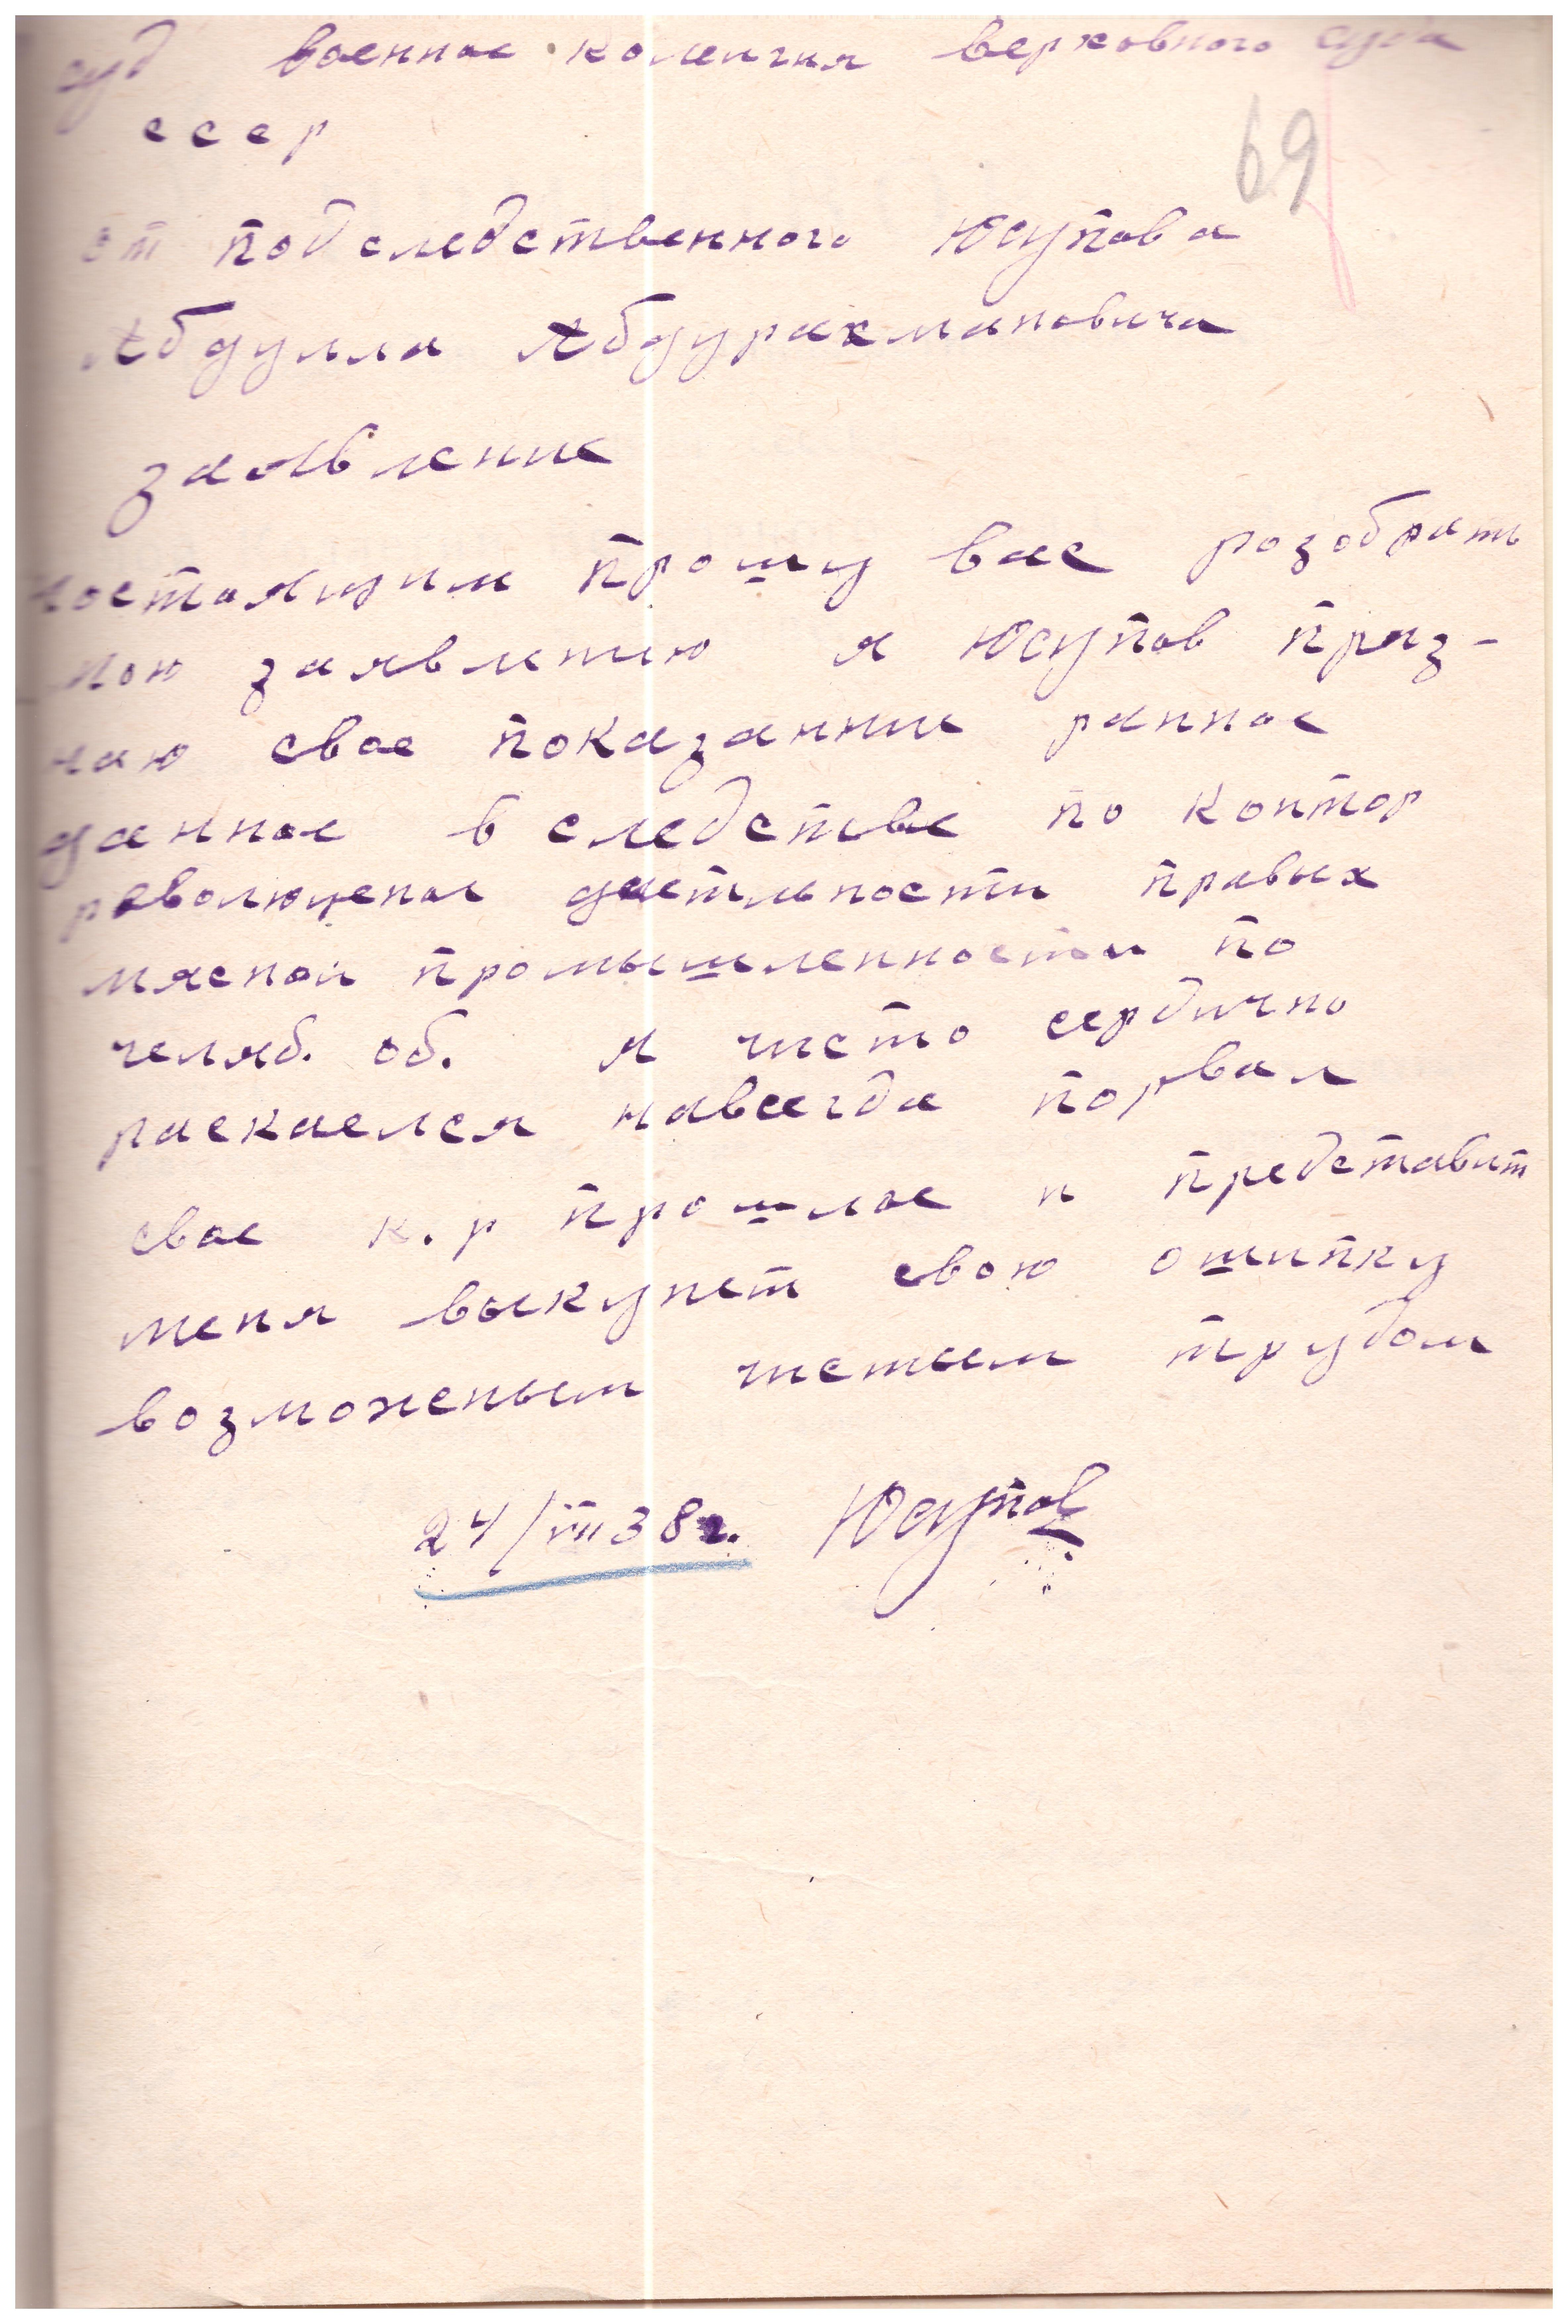 суд военное колегия верховного суда
ссср
69
от подследственного Юсупова
Абдулла Абдурахмановича
заявление
ностоящим прошу вас розобрать
мою заявлению я Юсупов приз-
наю свое показанние раннее
данное в следстве по контор
революценое деетельности правых
мясной промышленности по
челяб. об. я чисто сердично
раскаелся навсегда порвал
свое к.р прошлое и представит
меня выкупет свою ошипку
возможеным честным трудом
24/VIII 38г. Юсупов